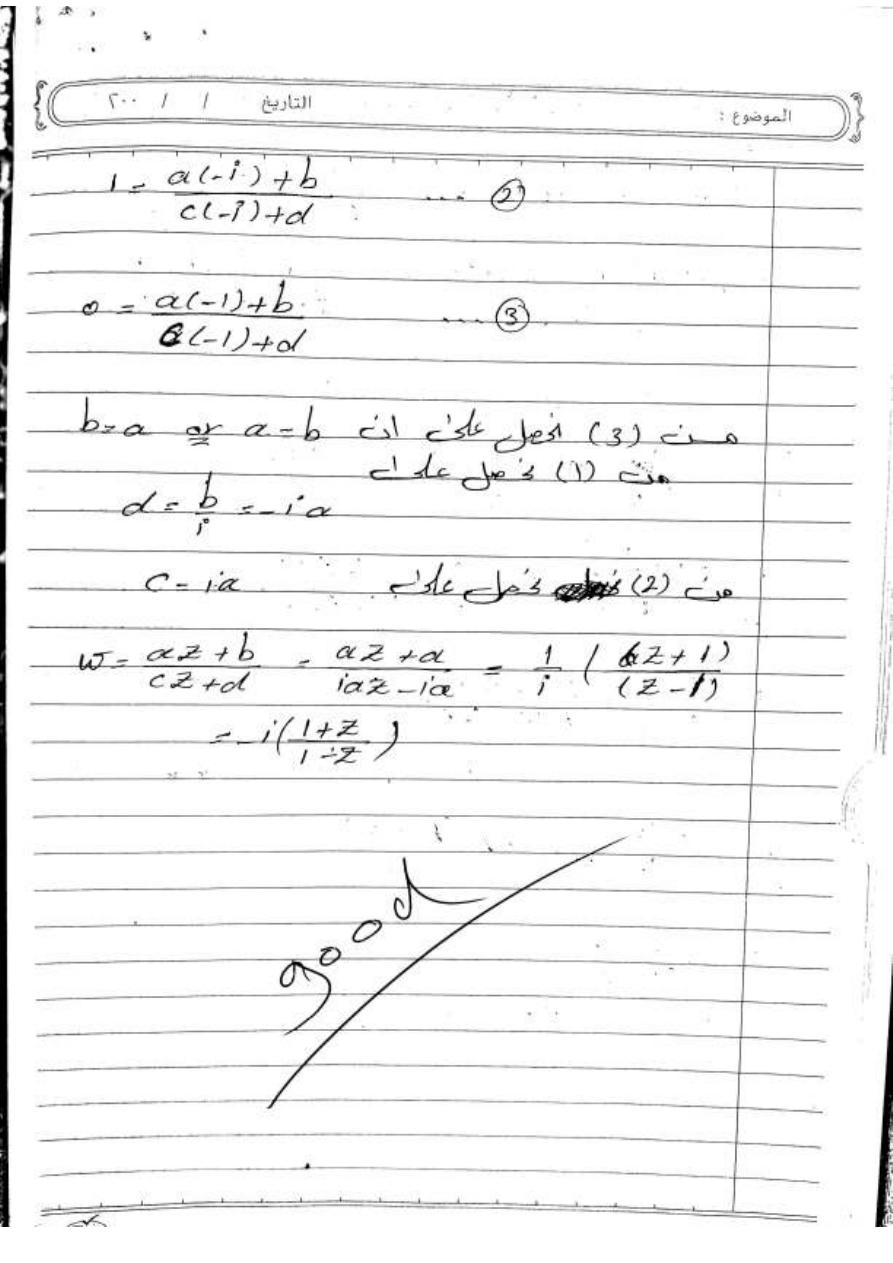 الموضوع : التاريخ / / ٢٠٠
1 = \frac{a(-i)+b}{c(-i)+d} .... ②
0 = \frac{a(-1)+b}{c(-1)+d} .... ③
من (3) نحصل على ان a=b or b=a
من (1) نحصل على
d = \frac{b}{i} = -ia
من (2) نحصل على c = ia
w = \frac{az+b}{cz+d} = \frac{az+a}{iaz-ia} = \frac{1}{i} ( \frac{z+1)}{(z-1)}
= -i(\frac{1+z}{1-z})
good